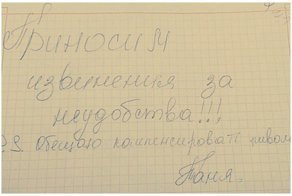 Приносим
извинения за
неудобства!!!
P.S. Обещаю компенсировать пивом
Таня